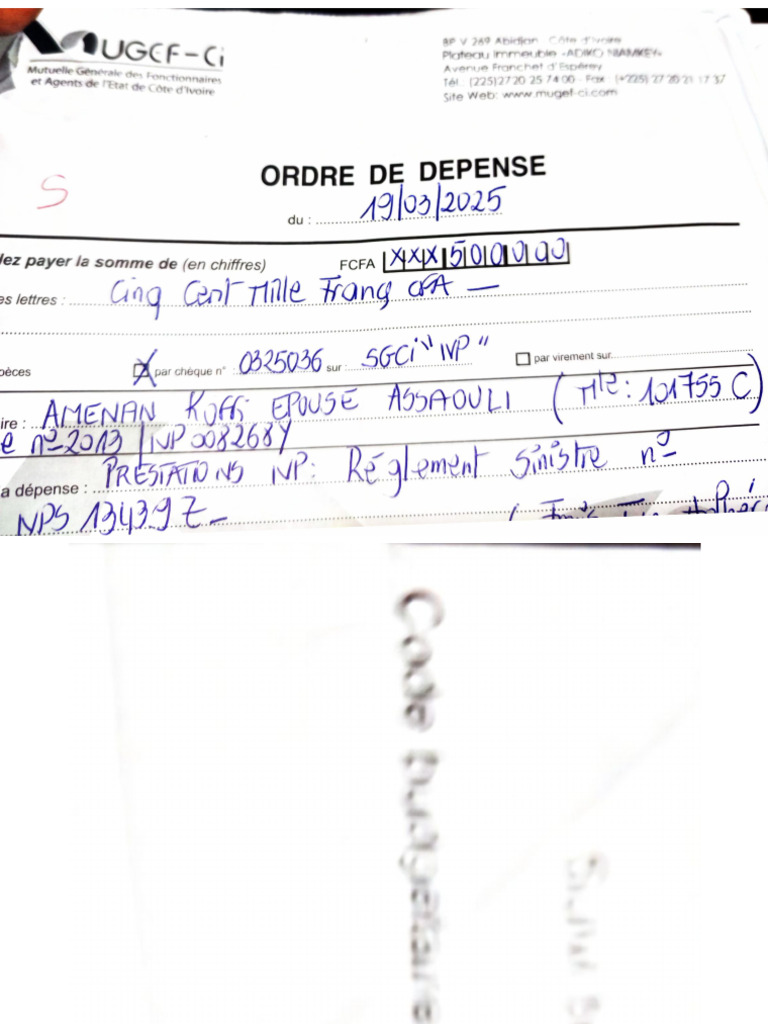 MUGEF-Ci
Mutuelle Générale des Fonctionnaires
et Agents de l'Etat de Côte d'Ivoire
BP V 269 Abidjan - Côte d'Ivoire
Plateau Immeuble -ADIKO NIAMKEY-
Avenue Franchet d'Espérey
Tél.: (225)27 20 25 74 00 - Fax : (+225) 27 20 21 17 37
Site Web: www.mugef-ci.com
S
ORDRE DE DEPENSE
du : 19/03/2025
lez payer la somme de (en chiffres) FCFA XXX500000
es lettres : Cinq Cent Mille Francs CFA —
pèces X par chèque n° : 0325036 sur : SGCi "IVP" par virement sur
ire : AMENAN KOFFI EPOUSE ASSAOULI (Mle: 101755 C)
e n° 2013 / NP 0082684
a dépense : PRESTATIONS NP: Réglement Sinistre n°
NPS 134397 —
Code budgétaire